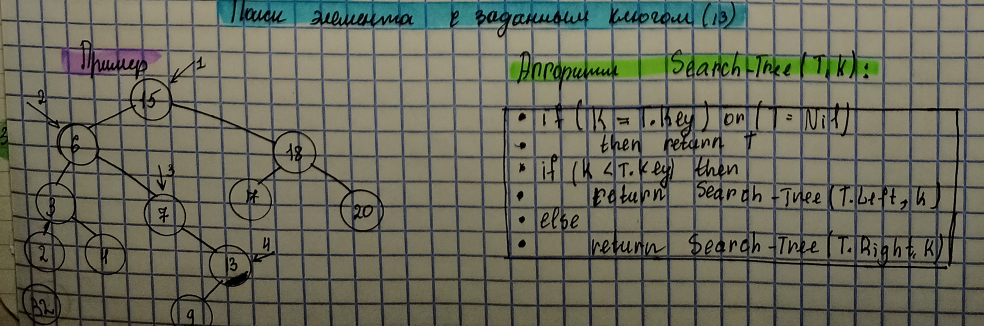 Поиск элемента с заданным ключом (13)
Пример
1
15
2
6
18
3
3
7
17
20
2
4
13
4
9
32
Алгоритм Search-Tree (T, K):
• if (K = T.Key) or (T = Nil)
• then return T
• if (K < T.Key) then
• return Search-Tree (T.Left, K)
• else
• return Search-Tree (T.Right, K)